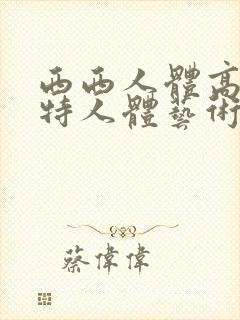 西西人體高
特人體藝術
蔡偉偉